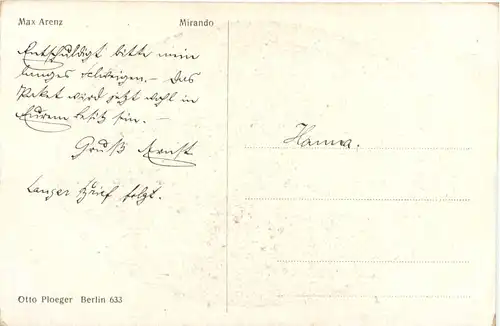 Max Arenz Mirando
Entschuldigt bitte mein
langes schweigen. – Das
Paket wird jetzt wohl in
Eurem besitz sein. –
Gruß Ernst
Langer Brief folgt.
Hanna.
Otto Ploeger Berlin 633